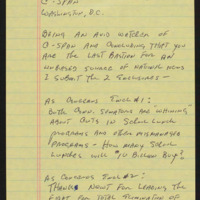 C-SPAN
WASHINGTON, D.C.
BEING AN AVID WATCHER OF
C-SPAN AND CONCLUDING THAT YOU
ARE THE LAST BASTION FOR AN
UNBIASED SOURCE OF NATIONAL NEWS
I SUBMIT THE 2 ENCLOSURES -
AS CONCERNS ENCL #1:
BOTH CONN. SENATORS ARE "WHINING"
ABOUT CUTS IN SCHOOL LUNCH
PROGRAMS AND OTHER MISMANAGED
PROGRAMS - HOW MANY SCHOOL
LUNCHES WILL "10 BILLION BUY"?
AS CONCERNS ENCL #2:
THANKS NEWT FOR LEADING THE
FIGHT FOR TOTAL ELIMINATION OF